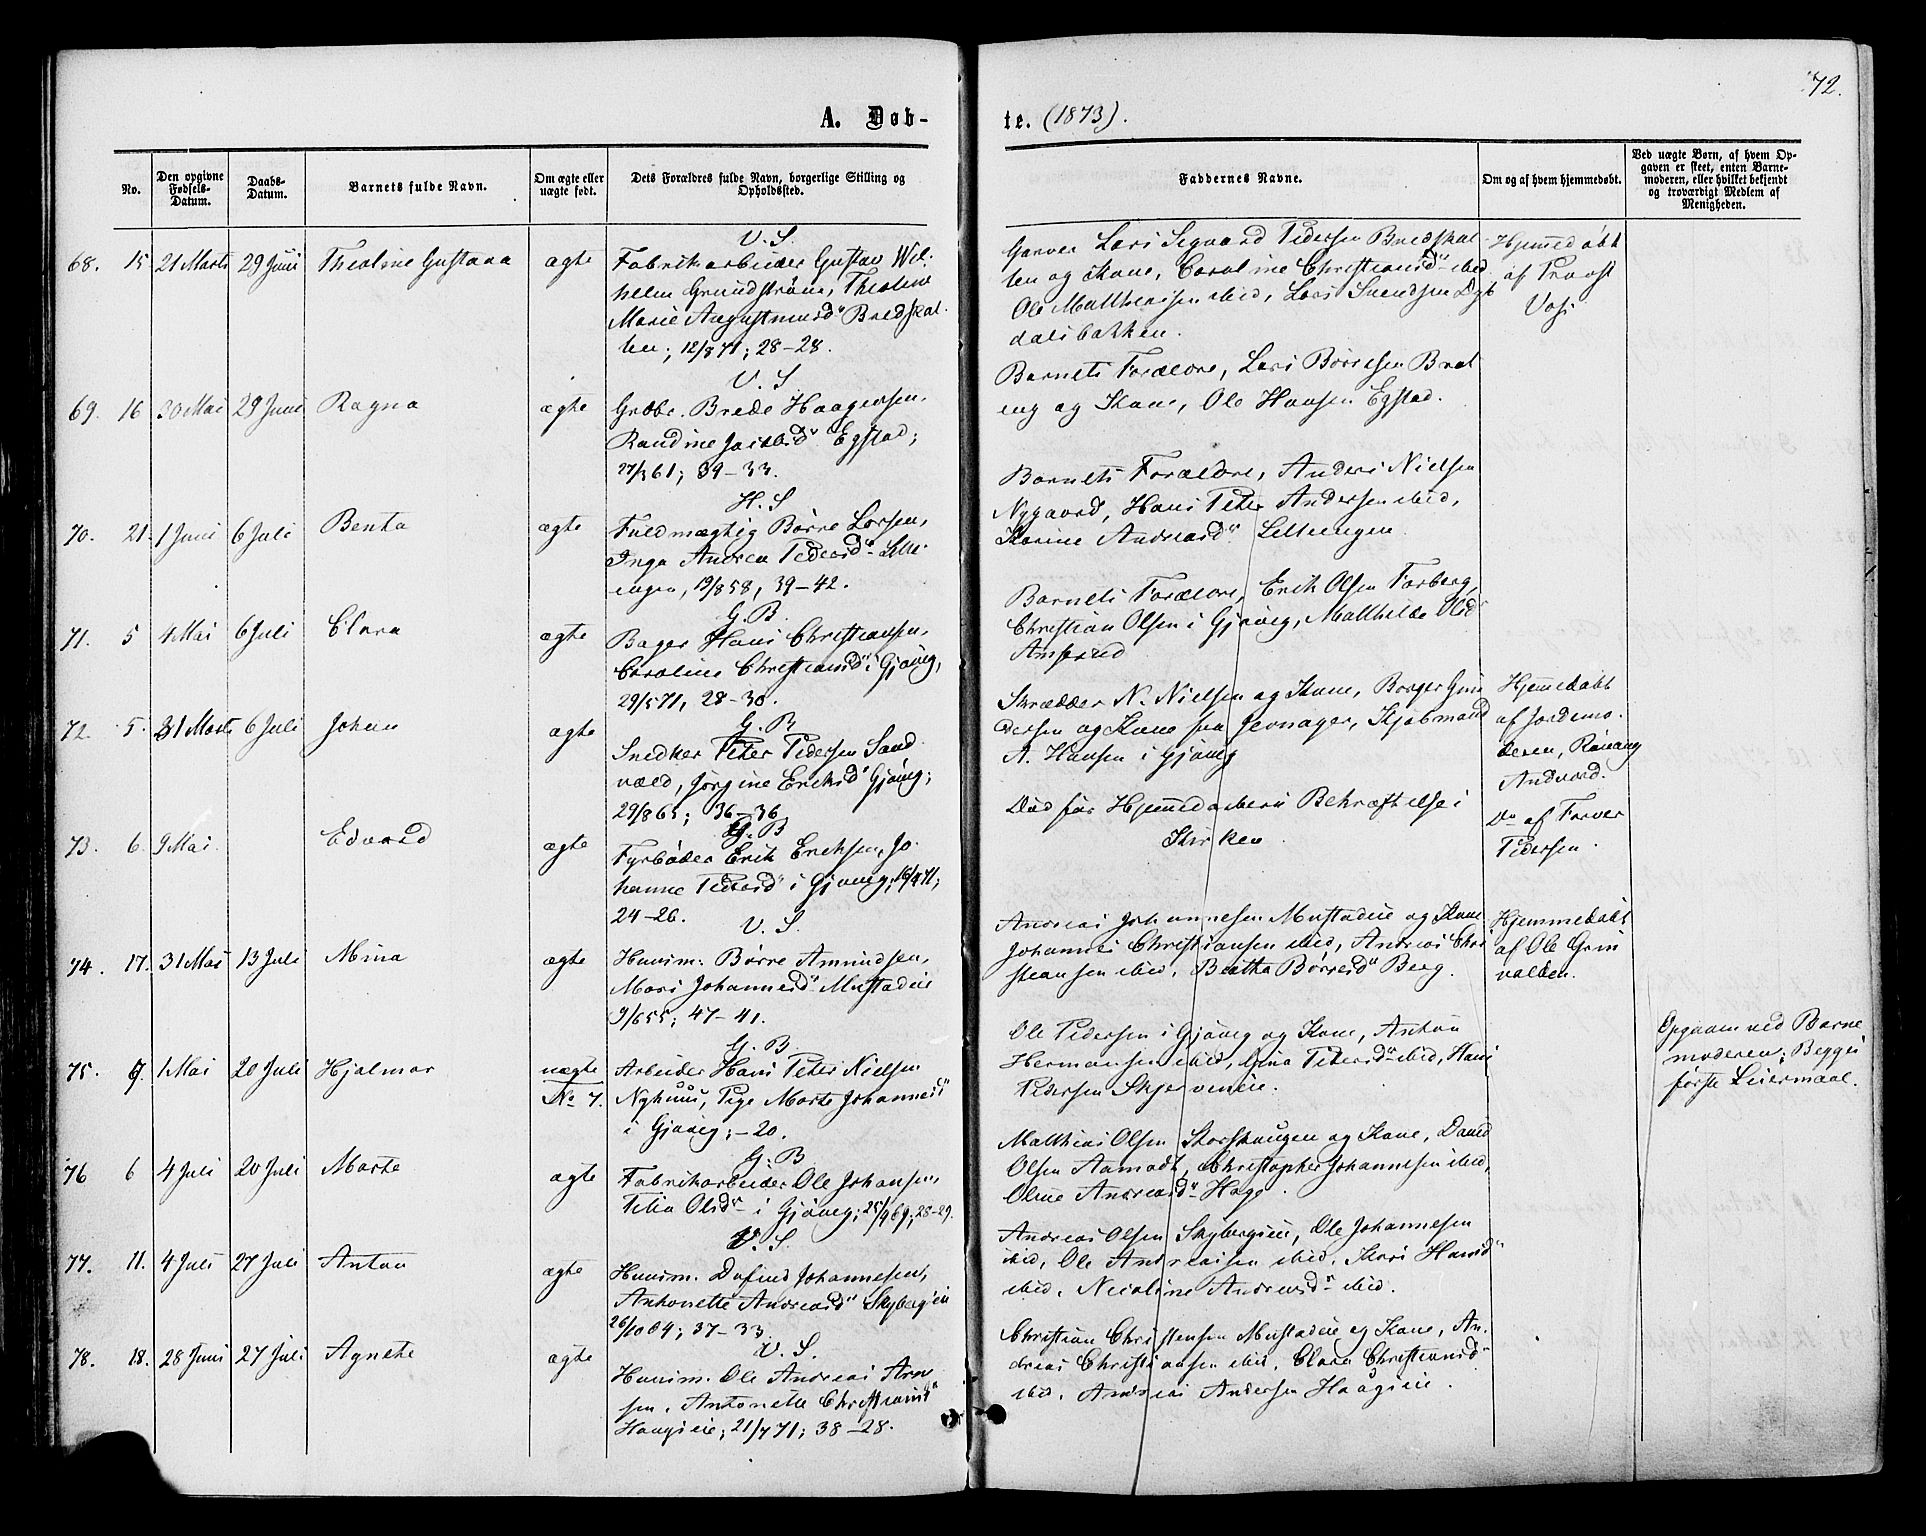 72.
A. Døb-
te. (1873).
No.
Den opgivne Fødsels-Datum.
Daabs-Datum.
Barnets fulde Navn.
Om ægte eller uægte født.
Dets Forældres fulde Navn, borgerlige Stilling og Opholdssted.
Faddernes Navne.
Om og af hvem hjemmedøbt.
Ved uægte Børn, af hvem Op-
gaven er skeet, enten Barne-
moderen, eller hvilket bekjendt
og troværdigt Medlem af
Menigheden.
V. S.
68. 15 21 Marts 29 Juni Theoline Gustava ægte Fabrikarbeider Gustav Wil-
helm Grundstrøm, Theoline
Marie Augustinusd. Bredskal-
len; 12/8 71; 28-28.
Garver Lars Sigvard Pedersen Bredskal-
len og Kone, Caroline Christiansd. ibid.
Ole Matthiesen ibid, Lars Svendsen
dalsbakken.
Hjemmedøbt
af Provst
V. S.
69. 16 30 Mai 29 Juni Ragna ægte Brede Haagensen,
Randine Jacobsd. Egstad;
27/3 61; 39-33.
Barnets Forældre, Lars Børresen Brat
eng og Kone, Ole Hansen Egstad.
H. S
70. 21. 1 Juni 6 Juli Benta ægte Fuldmægtig Børre Larsen,
Inga Andrea Pedersd. Lille-
engen, 19/8 58, 39-42.
Barnets Forældre, Anders Nielsen
Nygaard, Hans Peter Andersen ibid,
Karine Andreasd. Lilleengen
G. B.
71. 5 4 Mai 6 Juli Clara ægte Bager Hans Christiansen,
Caroline Christiansd. i Gjøvig,
29/5 71, 28-30.
Barnets Forældre, Erik Olsen Farberg,
Christian Olsen i Gjøvig, Matthilde Olsd.
G. B
72. 5. 31 Marts 6 Juli Johan ægte Snedker Peter Pedersen Sand
vold, Jørgine Eriksd. Gjøvig;
29/8 65; 36-36
Skrædder N. Nielsen og Kone, Borger Gun
dersen og Kone fra Jevnager, Kjøbmand
A. Hansen i Gjøvig
Hjemmedøbt
af Jordemo-
deren,
G. B
73. 6. 9 Mai. Edvard ægte Fyrbøder Erik Eriksen, Jo-
hanne Pedersd. i Gjøvig; 16/4 71;
24-26.
Død før Hjemmedaabens Bekræftelse i
Kirken.
Do af Farver
Pedersen.
V. S.
74. 17. 31 Mai 13 Juli Mina ægte Huusm. Børre Amundsen,
Mari Johannesd. Mustadeie
9/6 55; 47-41.
Andreas Johannesen Mustadeie og Kone
Johannes Christiansen ibid, Andreas Chri
stiansen ibid, Beatha Børresd. Berg.
Hjemmedøbt
af Ole Grin
valden.
G. B.
75. 7. 1 Mai 20 Juli Hjalmar uægte Arbeider Hans Peter Nielsen
No 7. Nyhuus, Pige Marte Johannesd.
i Gjøvig; -20.
Ole Pedersen i Gjøvig og Kone, Anton
Hermansen ibid, Dina Petersd. ibid, Hans
Pedersen Skjerveneie.
Opgaven ved Barne
moderen; Begges
første Leiermaal.
G. B
76 6 4 Juli 20 Juli Marte ægte Fabrikarbeider Ole Johansen,
Tilia Olsd. i Gjøvig; 25/9 69; 28-29.
Matthias Olsen Korshaugen og Kone, David
Olsen Aamodt, Christopher Johannesen ibid,
Oline Andreasd. Hage.
V. S.
77. 11. 4 Juli 27 Juli Anton ægte Huusm. Dafind Johannesen,
Antonette Andreasd. Skybergeie
26/10 64; 37-33.
Andreas Olsen Skybergeie, Ole Johannesen
ibid, Ole Andreasen ibid, Kari Hansd.
ibid, Nicoline Andreasd. ibid.
V. S.
78. 18. 28 Juni 27 Juli Agnete ægte Huusm. Ole Andreas Arn
sen, Antonette Christiansd.
Haugseie; 21/7 71; 38-28.
Christian Christensen Mustadeie og Kone, An-
dreas Christiansen ibid, Clara Christiansd.
ibid, Andreas Andersen Haugeie.